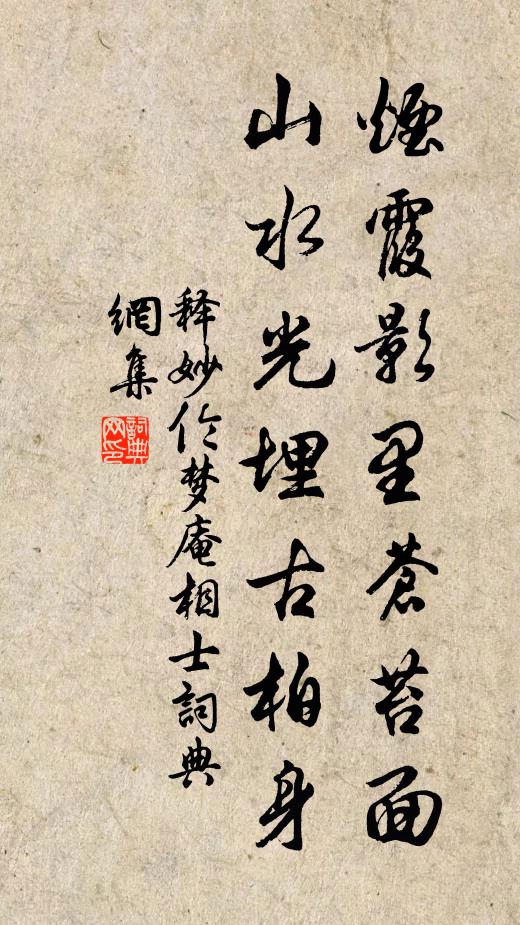 烟霞影里苍苔面
山水光埋古柏身
释妙伦梦庵相士詞典
網集
詞典
网印